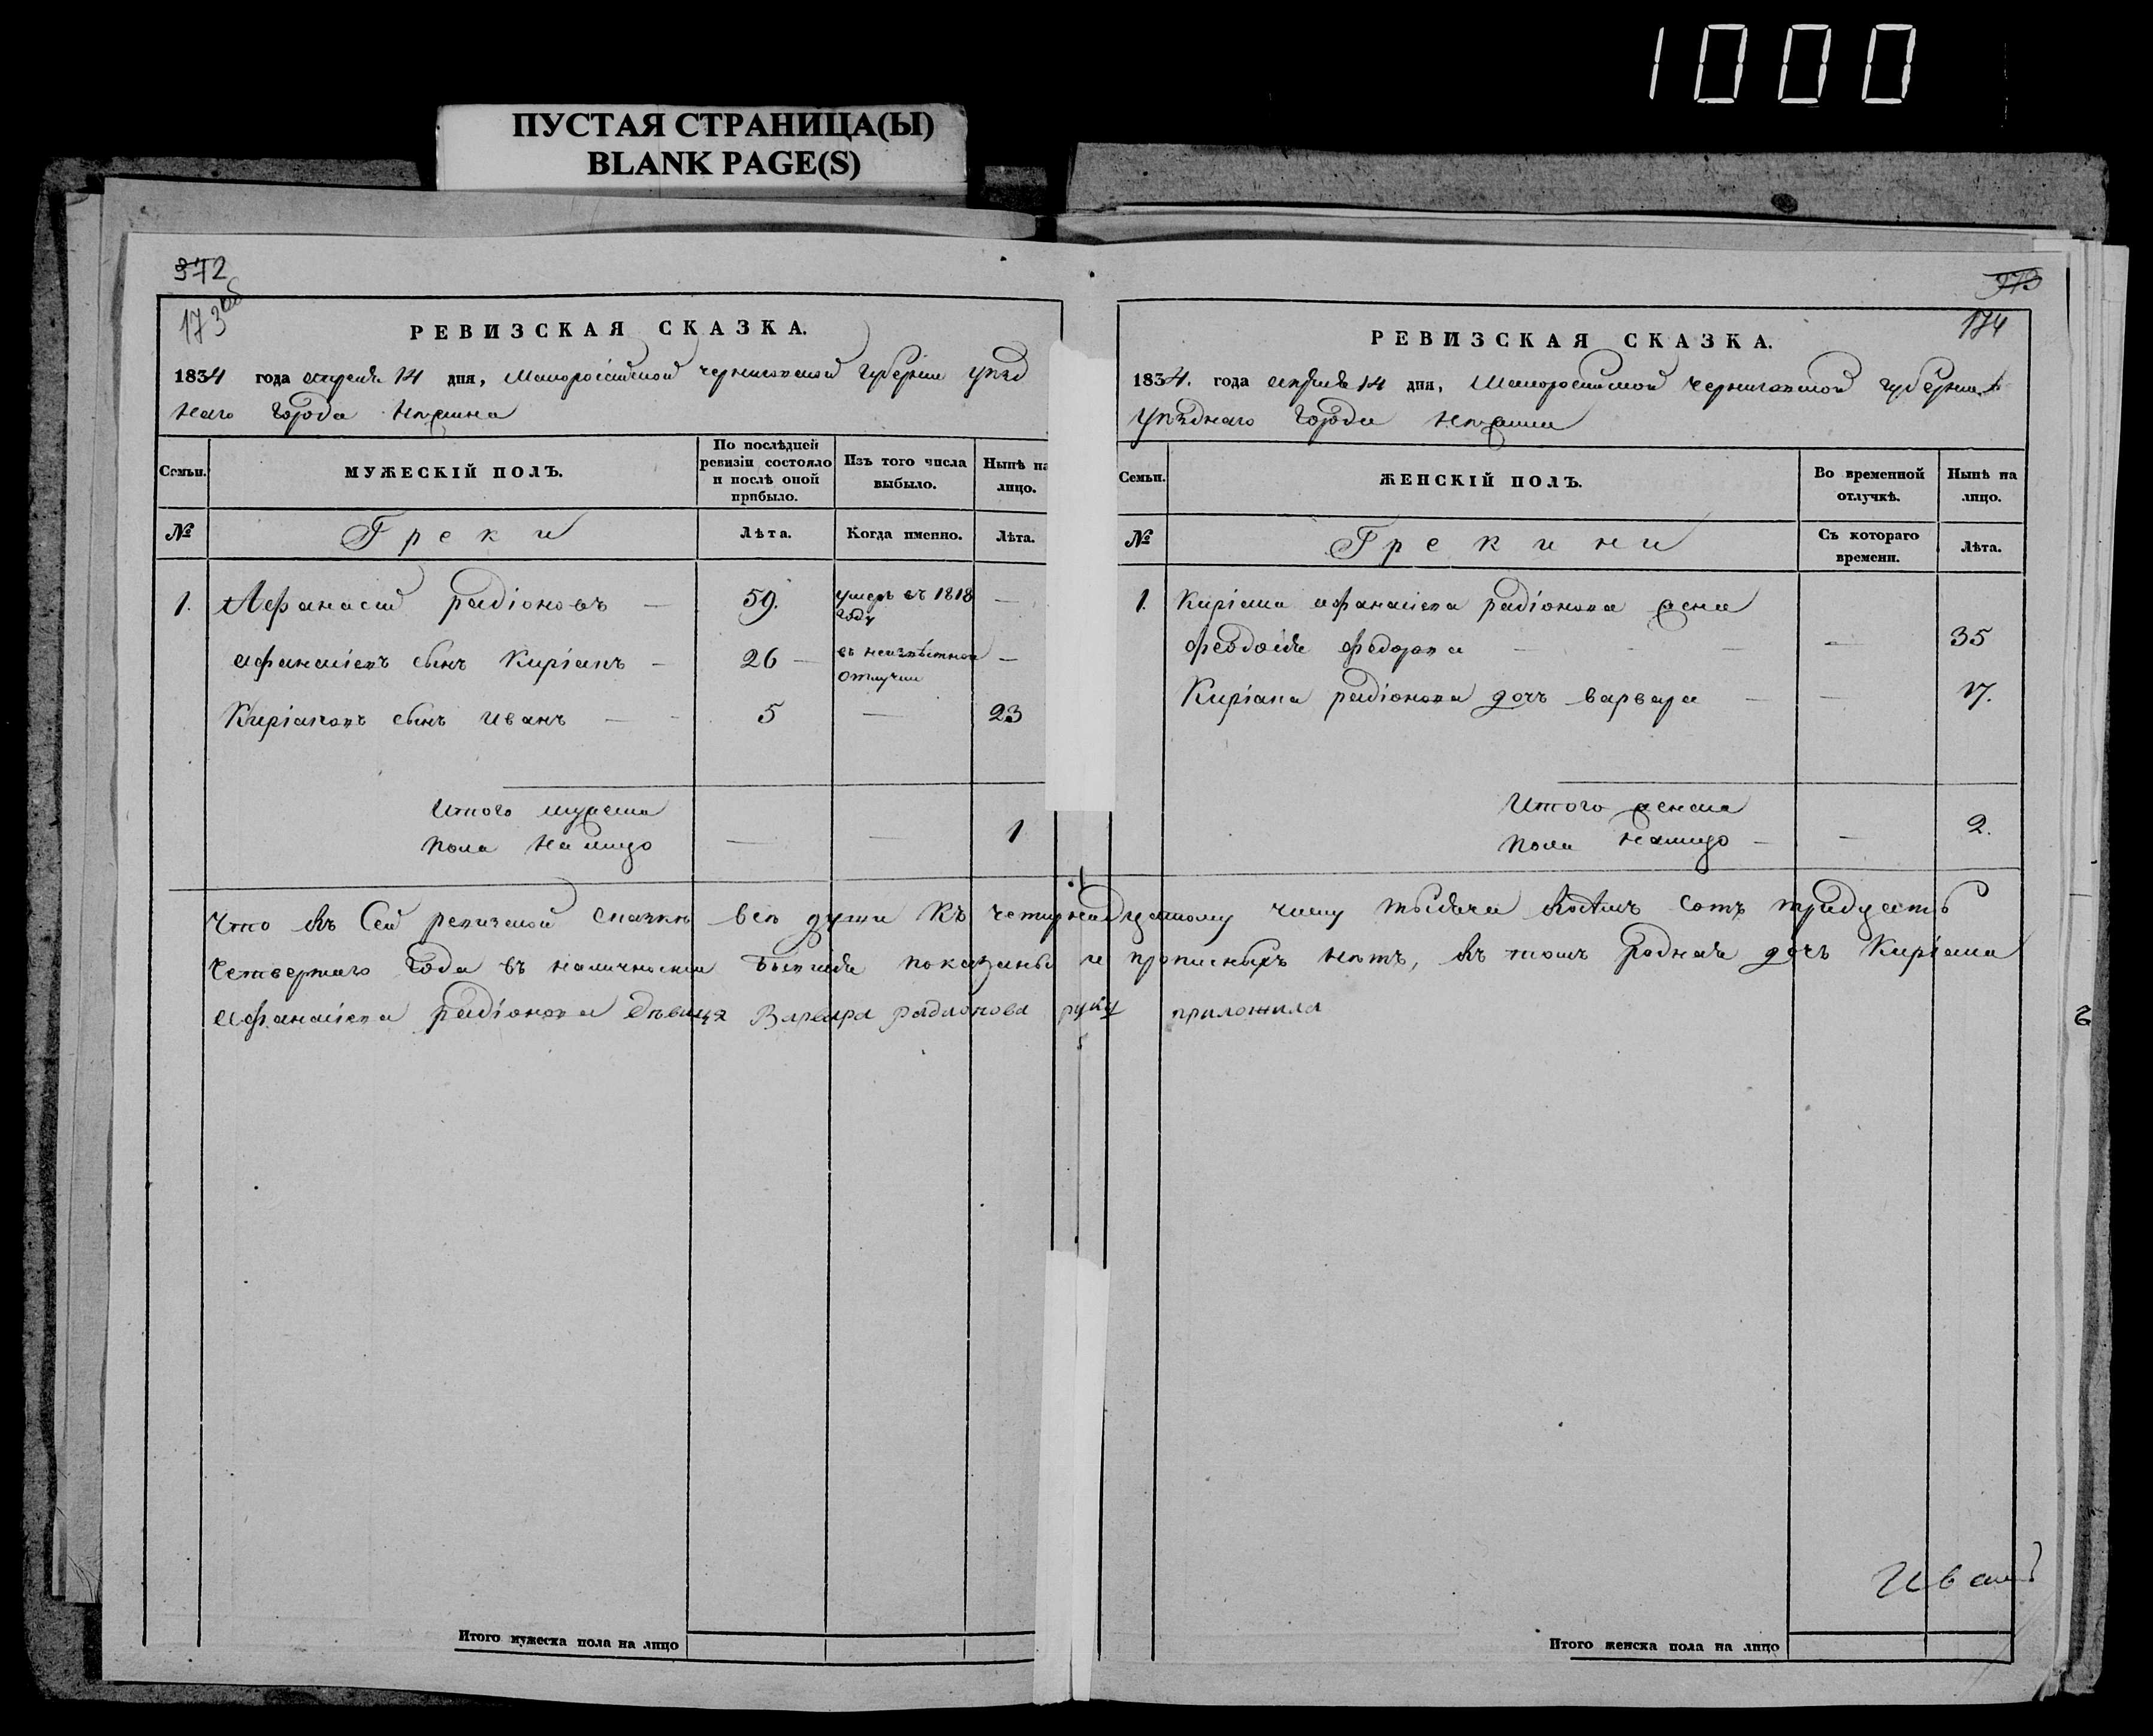 1000
ПУСТАЯ СТРАНИЦА(Ы)
BLANK PAGE(S)
372
173 об
РЕВИЗСКАЯ СКАЗКА.
1834 года апреля 14 дня, Малоросійской черниговской губерніи уѣзд
наго города нѣжина
Семьи.
МУЖЕСКІЙ ПОЛЪ.
По послѣдней ревизіи состояло и послѣ оной прибыло.
Изъ того числа выбыло.
Нынѣ на лицо.
№
Греки
Лѣта.
Когда именно.
Лѣта.
1. Афанасий радіоновъ — 59. умеръ въ 1818 году —
афанасіевъ сынъ Киріанъ — 26 — въ неизвѣстной отлучки —
Киріановъ сынъ иванъ — 5 — 23
Итого мужеска
пола на лицо — — 1
373
174
РЕВИЗСКАЯ СКАЗКА.
1834. года апреля 14 дня, Малоросийской черниговской губерніи
уѣзднаго города нѣжина
Семьи.
ЖЕНСКІЙ ПОЛЪ.
Во временной отлучкѣ.
Нынѣ на лицо.
№
Грекини
Съ котораго времени.
Лѣта.
1. Киріана афанасіева радіонова жена
феодосія федорова — — 35
Киріана радіонова дочь варвара — — 17.
Итого женска
пола налицо — — 2.
Что въ Сей ревизской сказки всѣ души къ четырнадцатому числу тысяча восемъ сотъ тридцать
четвертаго года въ наличности бывшія показаны и прописныхъ нѣтъ, въ томъ родная дочь Киріана
афанасіева радіонова дѣвица Варвара радионова руку приложила
Иван
Итого мужеска пола на лицо
Итого женска пола на лицо